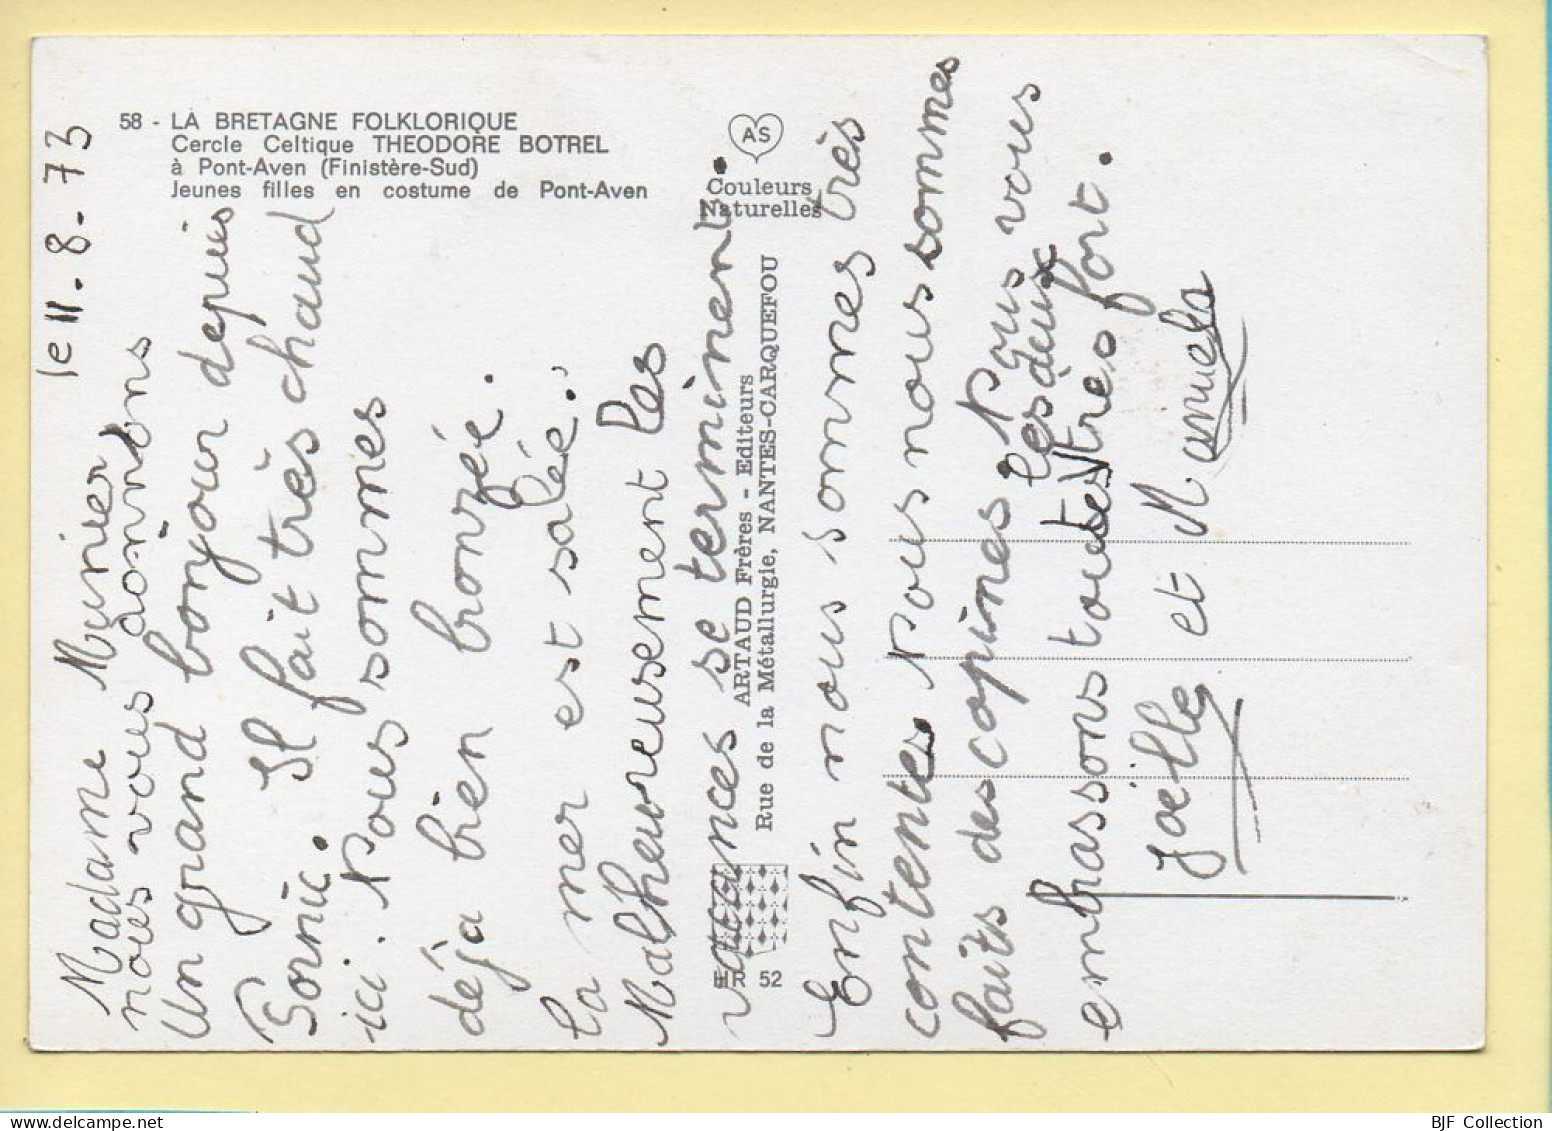 58 - LA BRETAGNE FOLKLORIQUE
Cercle Celtique THEODORE BOTREL
à Pont-Aven (Finistère-Sud)
Jeunes filles en costume de Pont-Aven
AS
Couleurs
Naturelles
ARTAUD Frères - Editeurs
Rue de la Métallurgie, NANTES-CARQUEFOU
52
le 11-8-73
Madame Munier
nous vous donnons
Un grand bonjour depuis
Pornic. Il fait très chaud
ici. Nous sommes
déja bien bronzée.
la mer est salée.
Malheureusement les
vacances se terminent.
Enfin nous sommes très
contentes Nous nous sommes
faits des copines Nous vous
embrassons toutes les deux très fort.
Joëlle et Manuela
BJF Collection